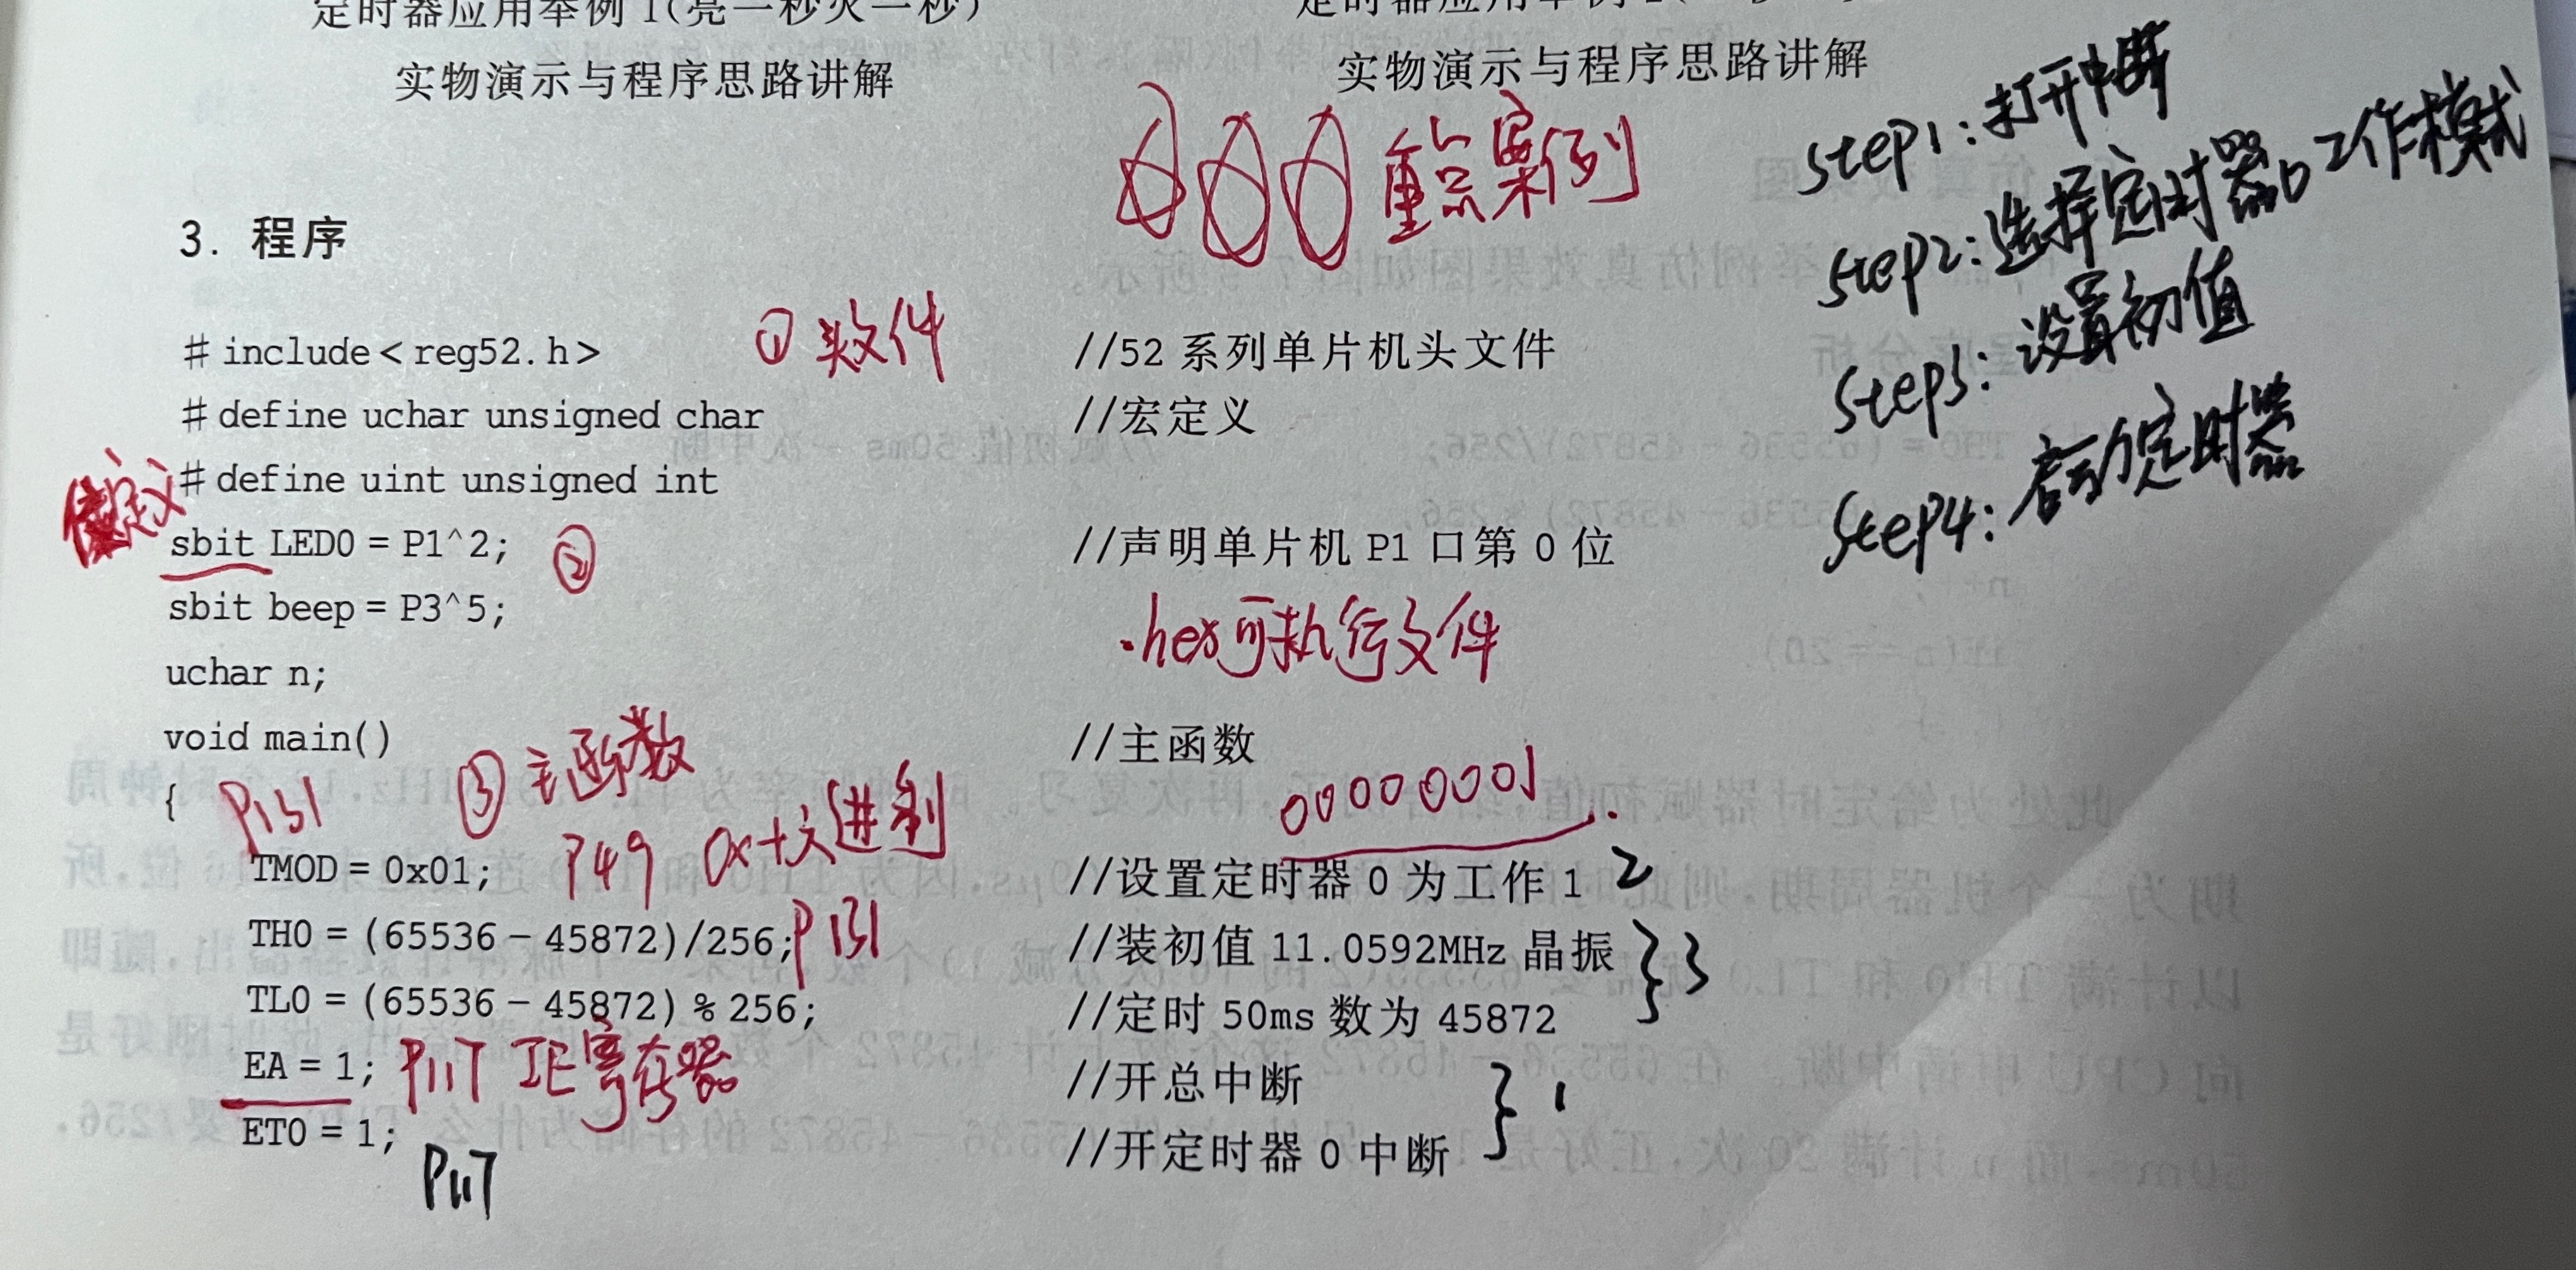 定时器应用举例 1(亮一秒灭一秒)
实物演示与程序思路讲解
定时器应用举例
实物演示与程序思路讲解
重点案例
step1:打开中断
step2:选择定时器0工作模式
step3:设置初值
step4:启动定时器
3. 程序
#include<reg52.h> ①头文件 //52 系列单片机头文件
#define uchar unsigned char //宏定义
#define uint unsigned int
位定义
sbit LED0 = P1^2; ② //声明单片机 P1 口第 0 位
sbit beep = P3^5;
.hex可执行文件
uchar n;
void main() ③主函数 //主函数
{ P131
00000001
TMOD = 0x01; P49 0x十六进制 //设置定时器 0 为工作 1 2
TH0 = (65536-45872)/256; P131 //装初值 11.0592MHz 晶振
TL0 = (65536-45872)%256; //定时 50ms 数为 45872 } 3
EA = 1; P117 IE寄存器 //开总中断
ET0 = 1; P117 //开定时器 0 中断 } 1